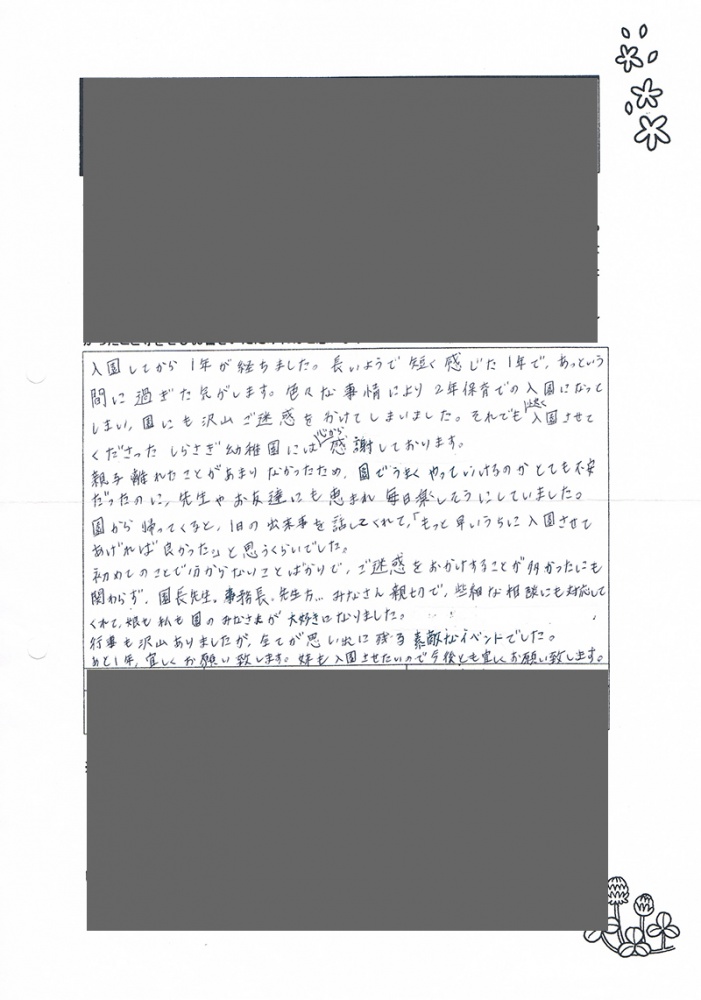 入園してから1年が経ちました。長いようで短く感じた1年で、あっという
間に過ぎた気がします。色々な事情により2年保育での入園になって
しまい、園にも沢山ご迷惑をおかけしてしまいました。それでも快く入園させて
くださったしらさぎ幼稚園には心から感謝しております。
親子離れたことがあまりなかったため、園でうまくやっていけるのかとても不安
だったのに、先生やお友達にも恵まれ毎日楽しそうにしていました。
園から帰ってくると、1日の出来事を話してくれて、「もっと早いうちに入園させて
あげれば良かった」と思うくらいでした。
初めてのことで分からないことばかりで、ご迷惑をおかけすることが多かったにも
関わらず、園長先生、事務長、先生方…みなさん親切で、些細な相談にも対応して
くれて、娘も私も園のみなさまが大好きになりました。
行事も沢山ありましたが、全てが思い出に残る素敵なイベントでした。
あと1年、宜しくお願い致します。妹も入園させたいので今後とも宜しくお願い致します。